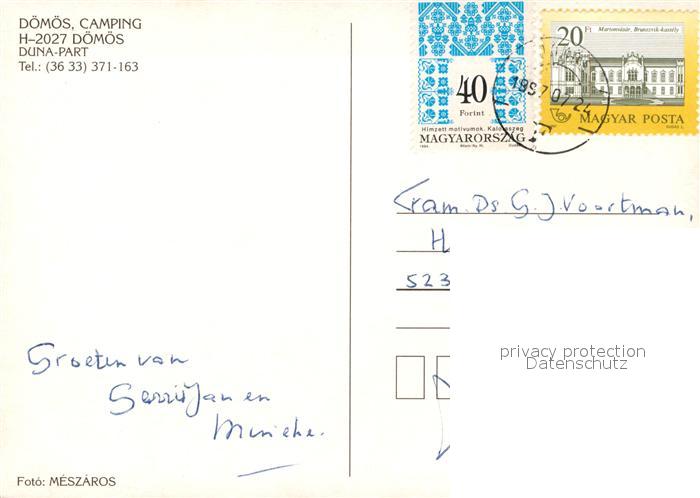 DÖMÖS, CAMPING
H–2027 DÖMÖS
DUNA-PART
Tel.: (36 33) 371-163
40
Forint
Hímzett motívumok. Kalotaszeg
MAGYARORSZÁG
20 Ft
Martonvásár, Brunszvik-kastély
MAGYAR POSTA
1997 07 24
Fam. Ds G. J. Voortman,
H
523
privacy protection
Datenschutz
Groeten van
Gerrit Jan en
Mineke.
Fotó: MÉSZÁROS